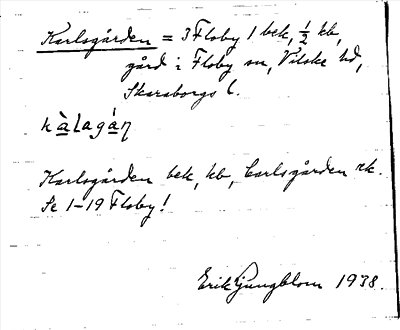 Karlsgården = 3 Floby 1 bek, ½ kb,
gård i Floby sn, Vilske hd,
Skaraborgs l.
kàlagán
Karlsgården bek, kb, Carlsgården rk.
Se 1-19 Floby!
Erik Ljungblom 1938.